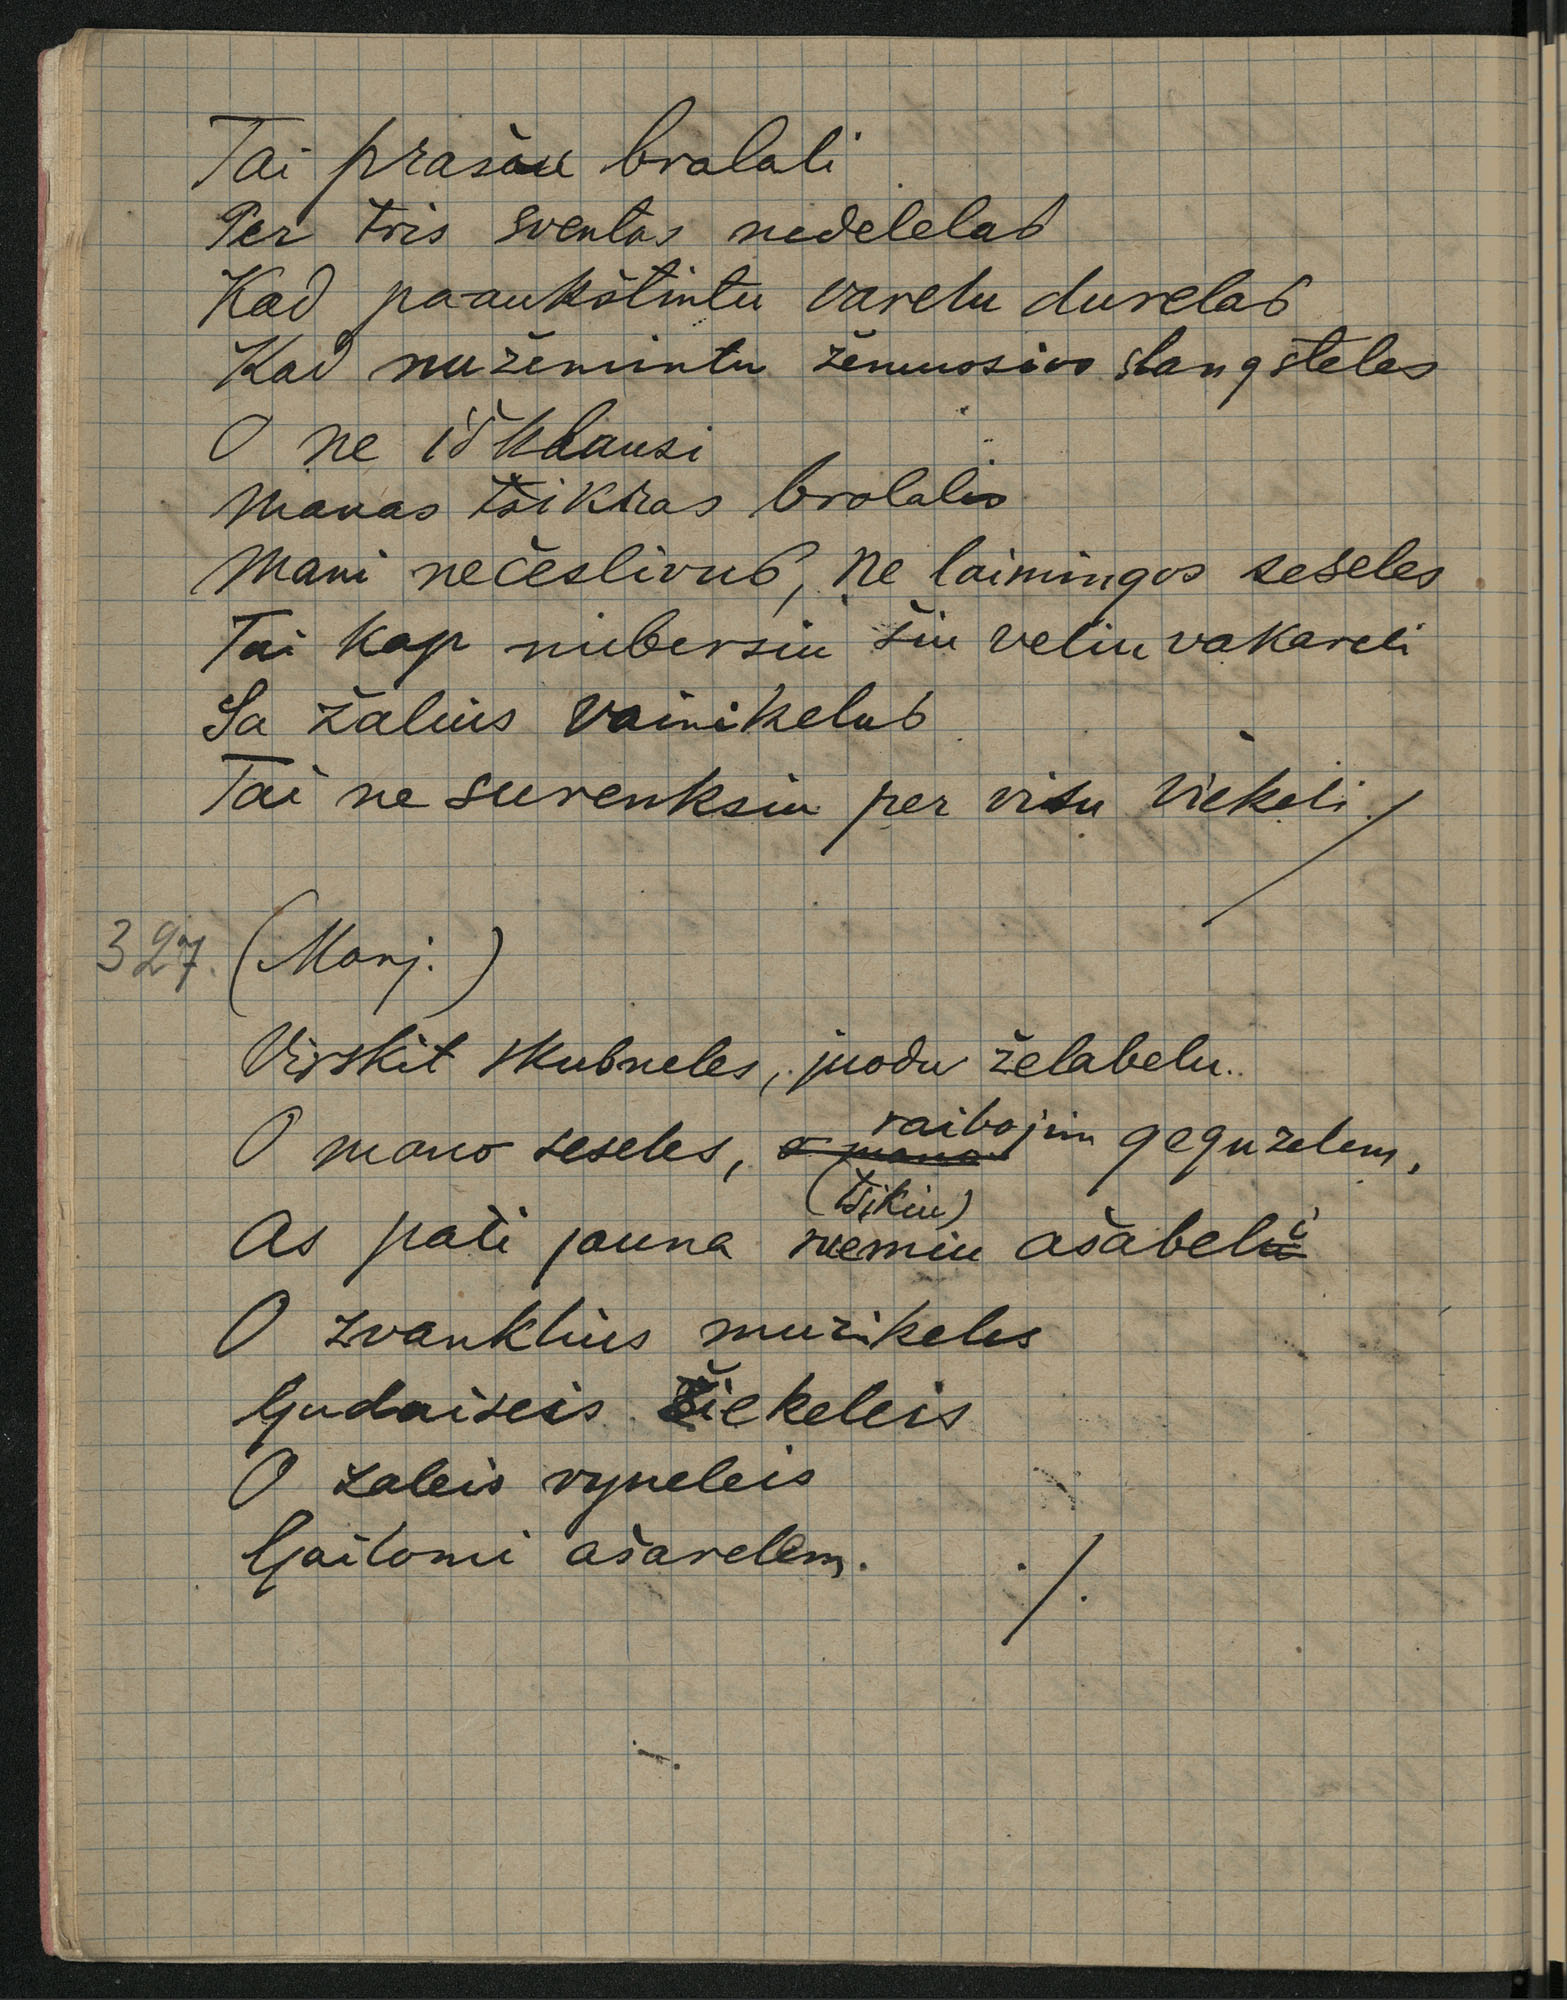 Tai prašau bralali
Per tris sventas nedelelas
Kad paaukštintu varelu durelas
Kad nužemintu žemuosius slangšteles
O ne išklausi
Manas tsikras brolalis
Mani nečeslivus, ne laimingos seseles
Tai kap nubersiu šiu veliu vakareli
Sa žalius vainikelus
Tai ne surenksiu per visu viekeli
327. (Marj.)
Virskit skubneles, juodu želabelu.
O mano seseles, o mano raibojim geguželem,
(tsikiu)
As pati jauna niemiu ašabeli
O zvanklius muzikeles
Gudaiseis šiekeleis
O zaleis vyneleis
Gailomi ašarelem.